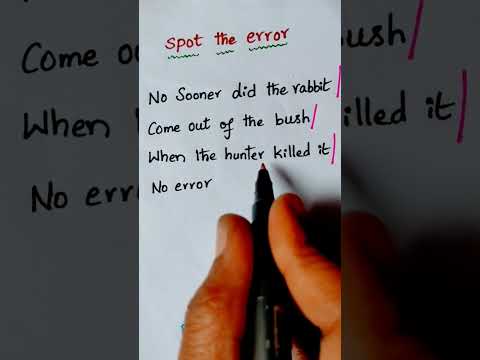 spot the error
No Sooner did the rabbit/
Come out of the bush/
When the hunter killed it/
No error